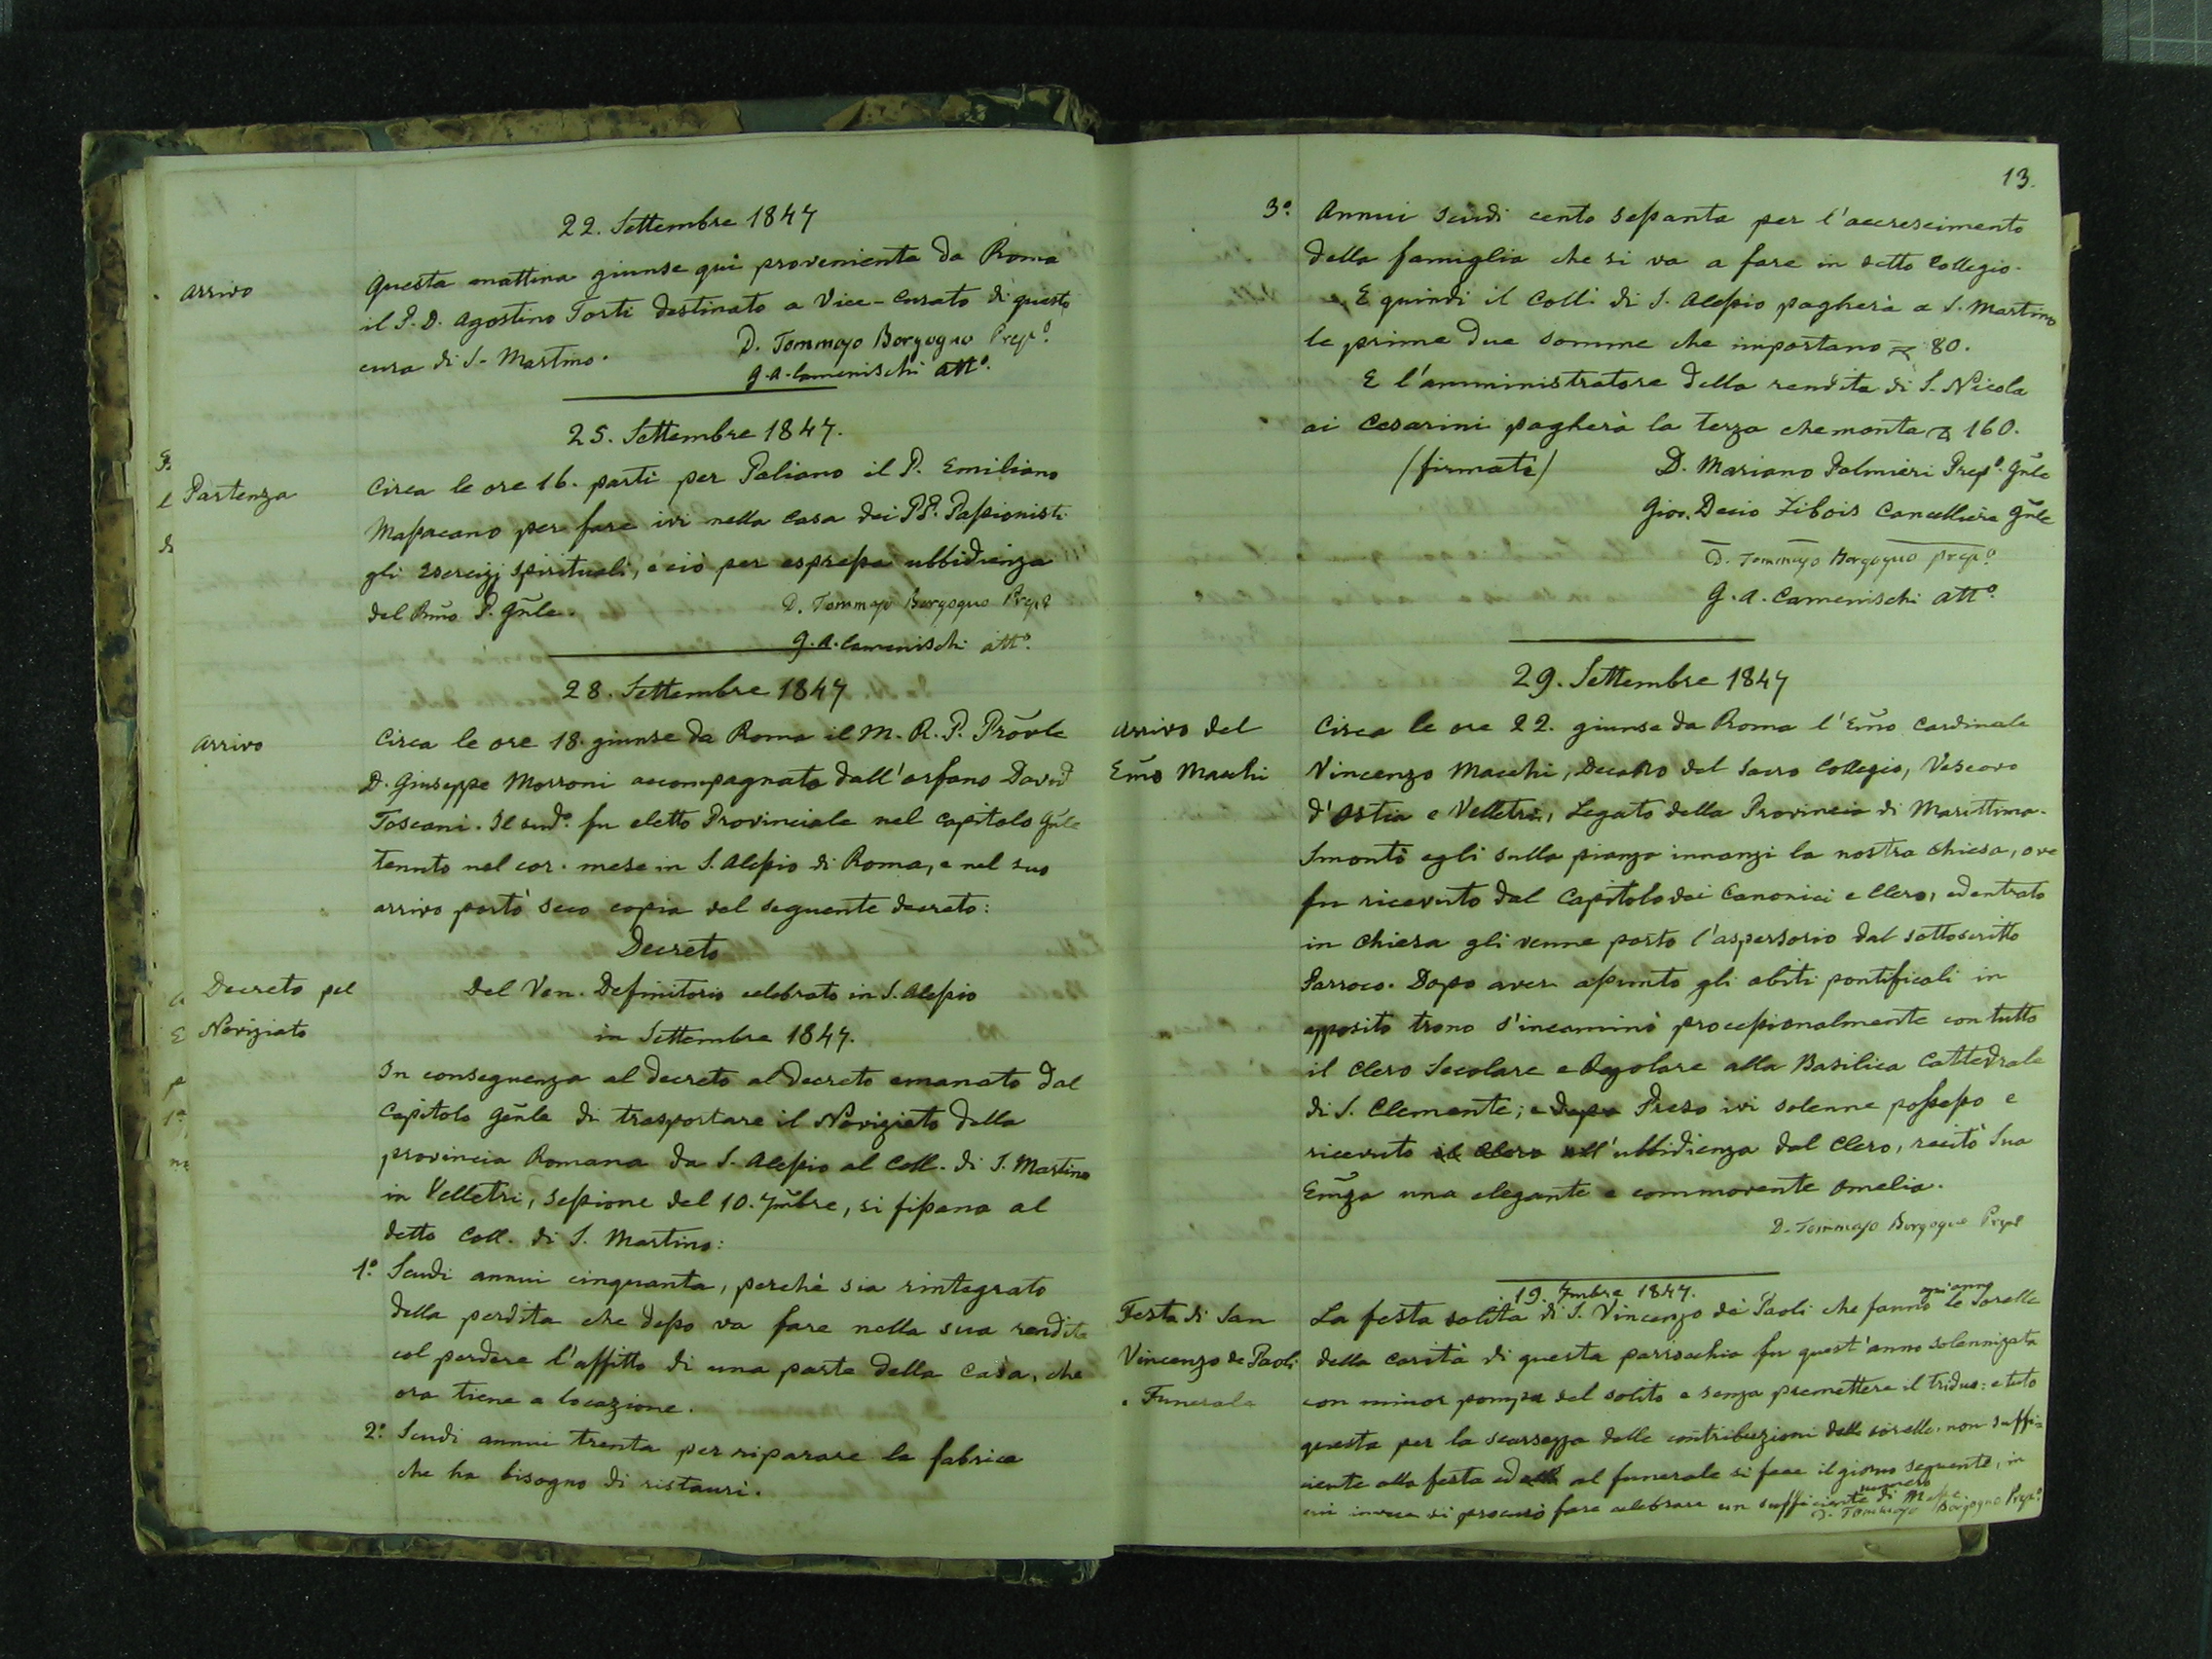 22. Settembre 1847
Arrivo
Questa mattina giunse quì proveniente da Roma
il P. D. Agostino Torti destinato a Vice-Curato di questa
cura di S. Martino.
D. Tommaso Borgogno Prep.º
G. A. Camenischi Att.º
25. Settembre 1847.
Partenza
Circa le ore 16. partì per Paliano il P. Emiliano
Massacano per fare ivi nella casa dei PP. Passionisti
gli Esercizj Spirituali, e ciò per espressa ubbidienza
del Rm̃o P. Gñle.
D. Tommaso Borgogno Prep.º
G. A. Camenischi Att.º
28. Settembre 1847
Arrivo
Circa le ore 18. giunse da Roma il M. R. P. Prõvle
D. Giuseppe Morroni accompagnato dall'orfano David
Toscani. Il sud.º fu eletto Provinciale nel Capitolo Gñle
tenuto nel cor. mese in S. Alessio di Roma, e nel suo
arrivo portò seco copia del seguente decreto:
Decreto
Decreto pel
Noviziato
Del Ven. Definitorio celebrato in S. Alessio
in Settembre 1847.
In conseguenza al decreto al decreto emanato dal
Capitolo Geñle di trasportare il Noviziato della
provincia Romana da S. Alessio al Coll. di S. Martino
in Velletri, sessione del 10. 7m̃bre, si fissano al
detto Coll. di S. Martino:
1.º Scudi annui cinquanta, perchè sia rintegrato
della perdita che desso va fare nella sua rendita
col perdere l'affitto di una parte della casa, che
ora tiene a locazione.
2.º Scudi annui trenta per riparare la fabrica
che ha bisogno di ristauri.
13.
3.º Annui scudi cento sessanta per l'accrescimento
della famiglia che si va a fare in detto Collegio.
E quindi il Coll: di S. Alessio pagherà a S. Martino
le prime due somme che importano 80.
E l'amministratore della rendita di S. Nicola
ai Cesarini pagherà la terza che monta 160.
(firmati) D. Mariano Palmieri Prep.º Gñle
Gio. Decio Libois Cancelliere Gñle
D. Tommaso Borgogno prep.º
G. A. Camenischi Att.º
29. Settembre 1847
Arrivo del
Em̃o Macchi
Circa le ore 22. giunse da Roma l'Em̃o Cardinale
Vincenzo Macchi, Decano del Sacro Collegio, Vescovo
d'Ostia e Velletri, Legato della Provincia di Marittima.
Smontò egli sulla piazza innanzi la nostra chiesa, ove
fu ricevuto dal Capitolo dei Canonici e Clero, ed entrato
in chiesa gli venne posto l'aspersorio dal sottoscritto
Parroco. Dopo aver assunto gli abiti pontificali in
apposito trono s'incaminò processionalmente con tutto
il Clero Secolare e Regolare alla Basilica Cattedrale
di S. Clemente; e dopo Preso ivi solenne possesso e
ricevuto il Clero all' ubbidienza dal Clero, recitò Sua
Em̃za una elegante e commovente omelia.
D. Tommaso Borgogno Prep.º
19. 7mbre 1847.
Festa di San
Vincenzo de Paoli
e Funerale
La festa solita di S. Vincenzo de Paoli che fanno ogni anno le Sorelle
della carità di questa parrocchia fu quest'anno solennizata
con minor pompa del solito e senza premettere il triduo: e tuto
questa per la scarsezza delle contribuzioni delle sorelle. non suffi=
ciente alla festa ed alla al funerale si fece il giorno seguente, in
cui invece si procurò fare celebrare un sufficiente numero di Messe
D. Tommaso Borgogno Prep.º